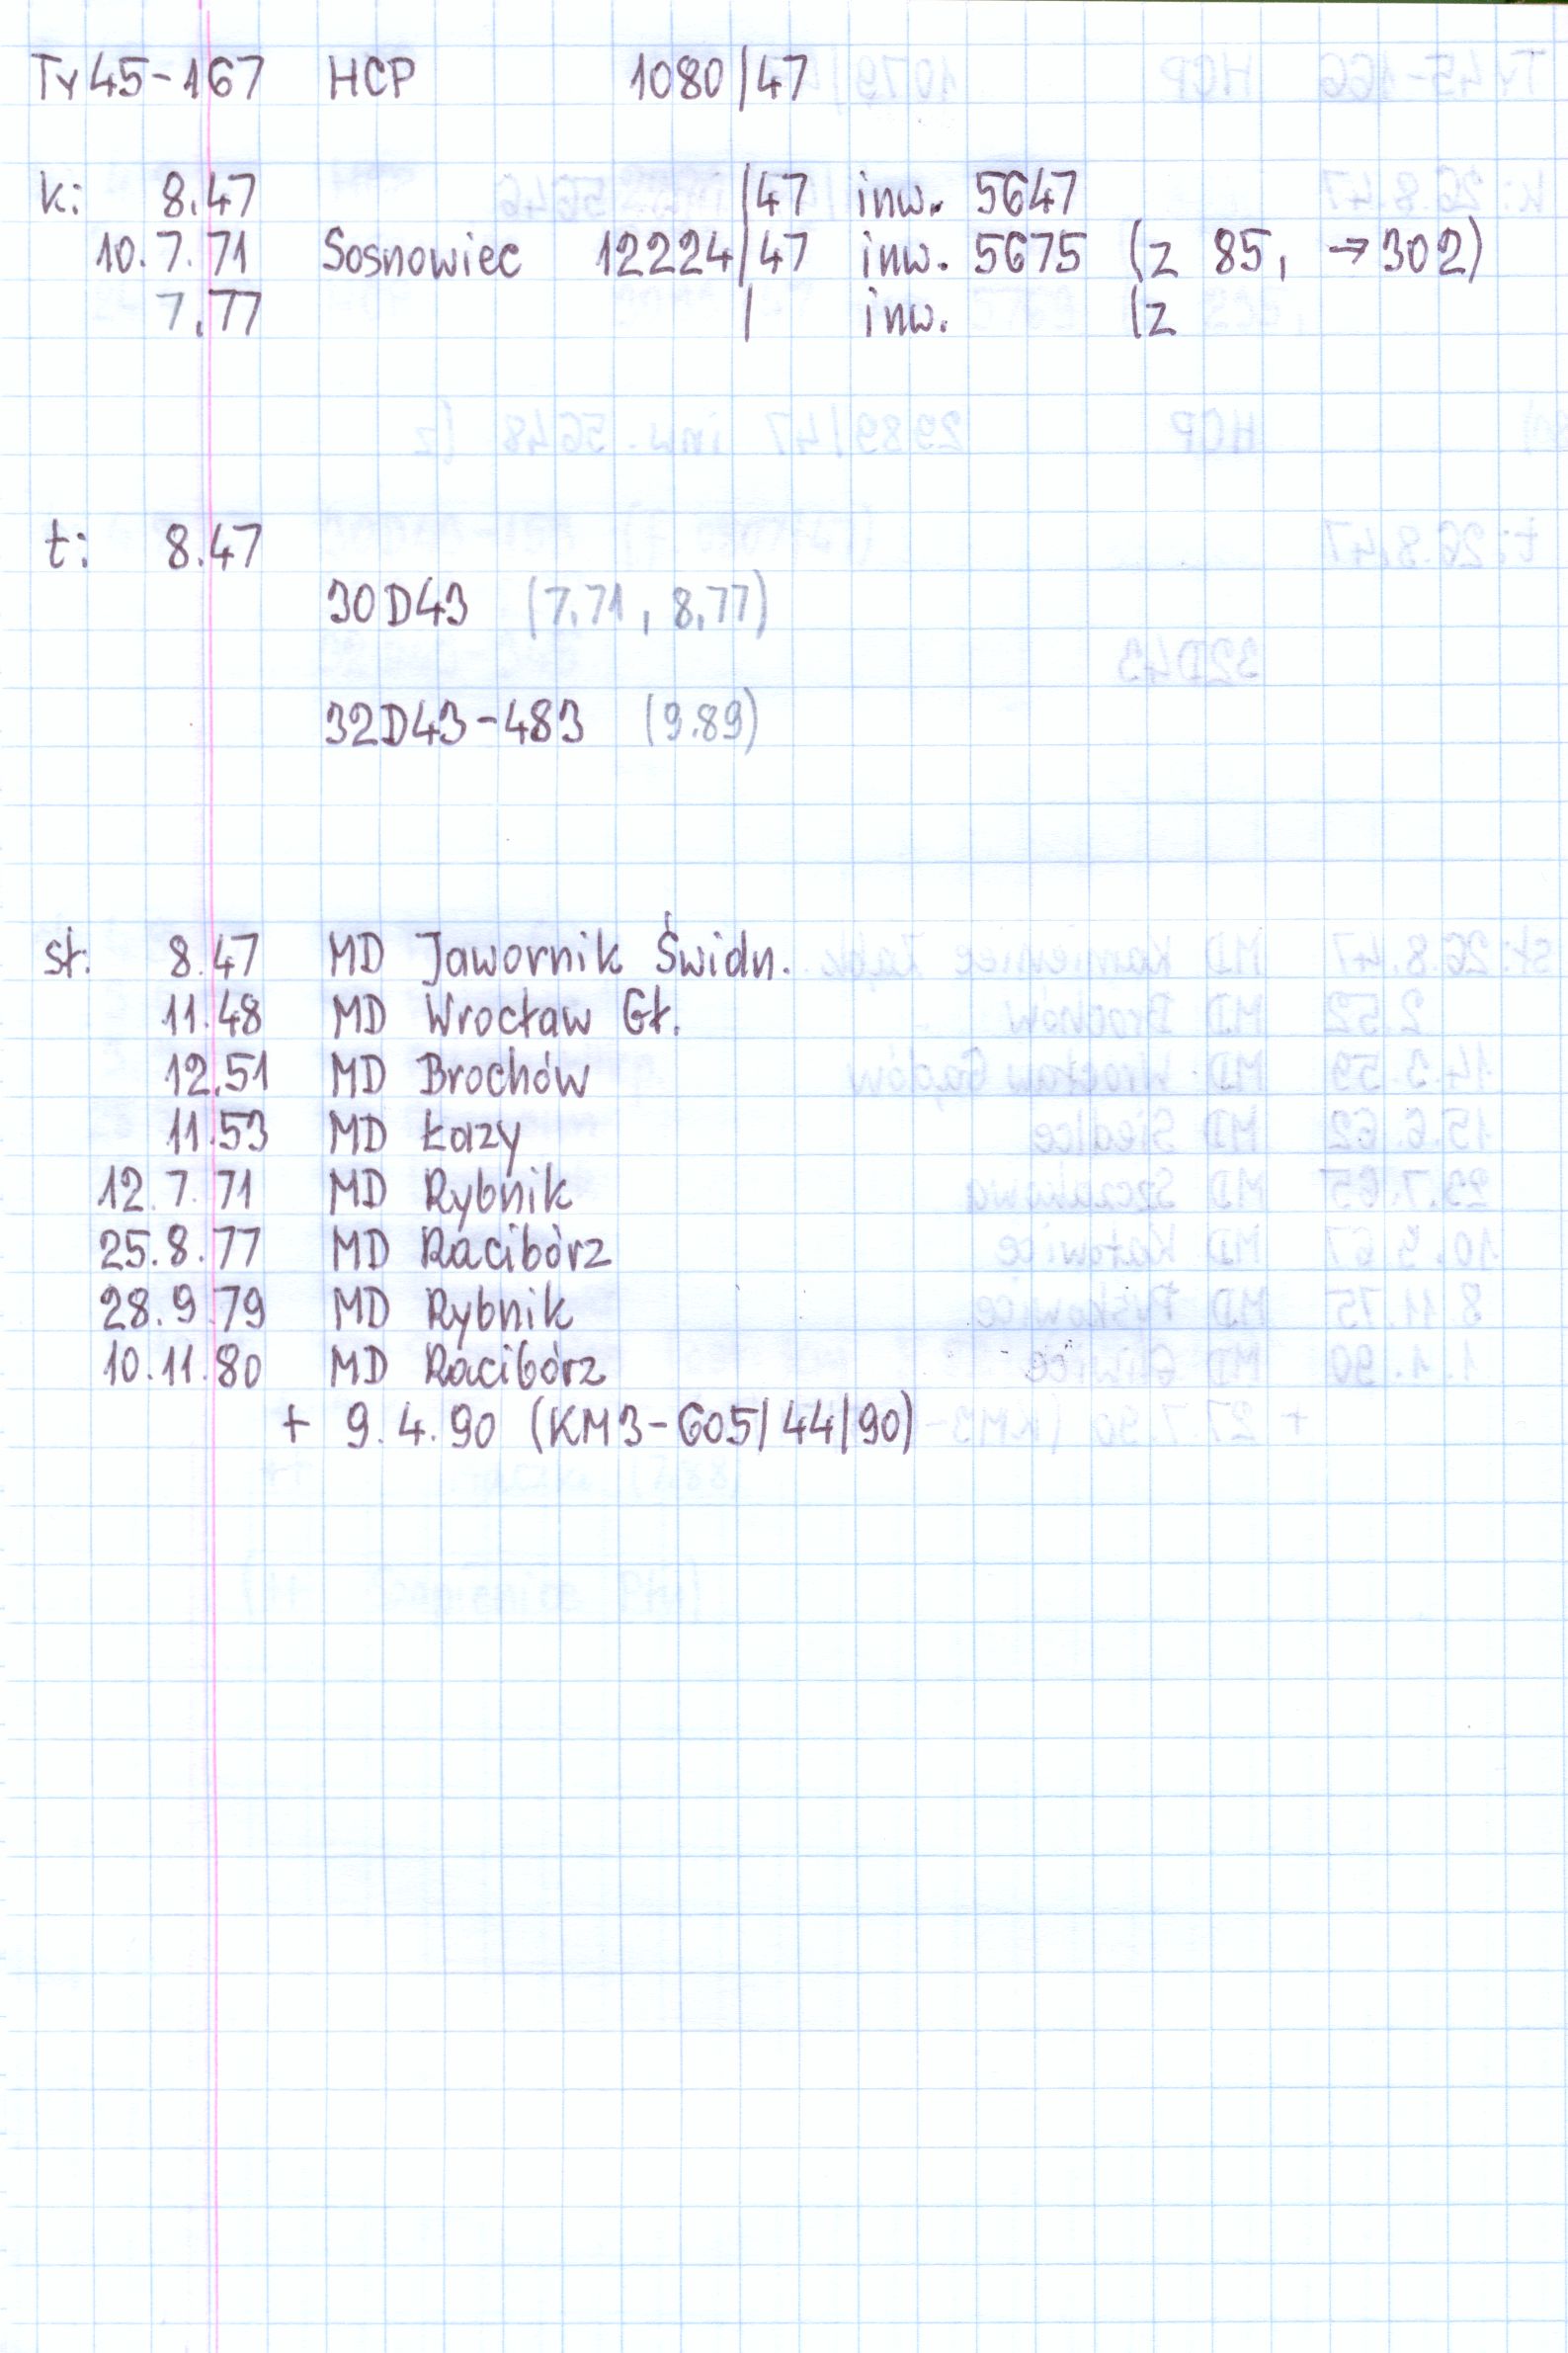 Ty45-167 HCP 1080/47
k: 8.47 /47 inw. 5647
10.7.71 Sosnowiec 12224/47 inw. 5675 (z 85, →302)
7.77 / inw. (z
t: 8.47
30D43 (7.71, 8.77)
32D43-483 (9.89)
st: 8.47 MD Jawornik Świdn.
11.48 MD Wrocław Gł.
12.51 MD Brochów
11.53 MD Łazy
12.7.71 MD Rybnik
25.8.77 MD Racibórz
28.9.79 MD Rybnik
10.11.80 MD Racibórz
+ 9.4.90 (KM3-605/44/90)